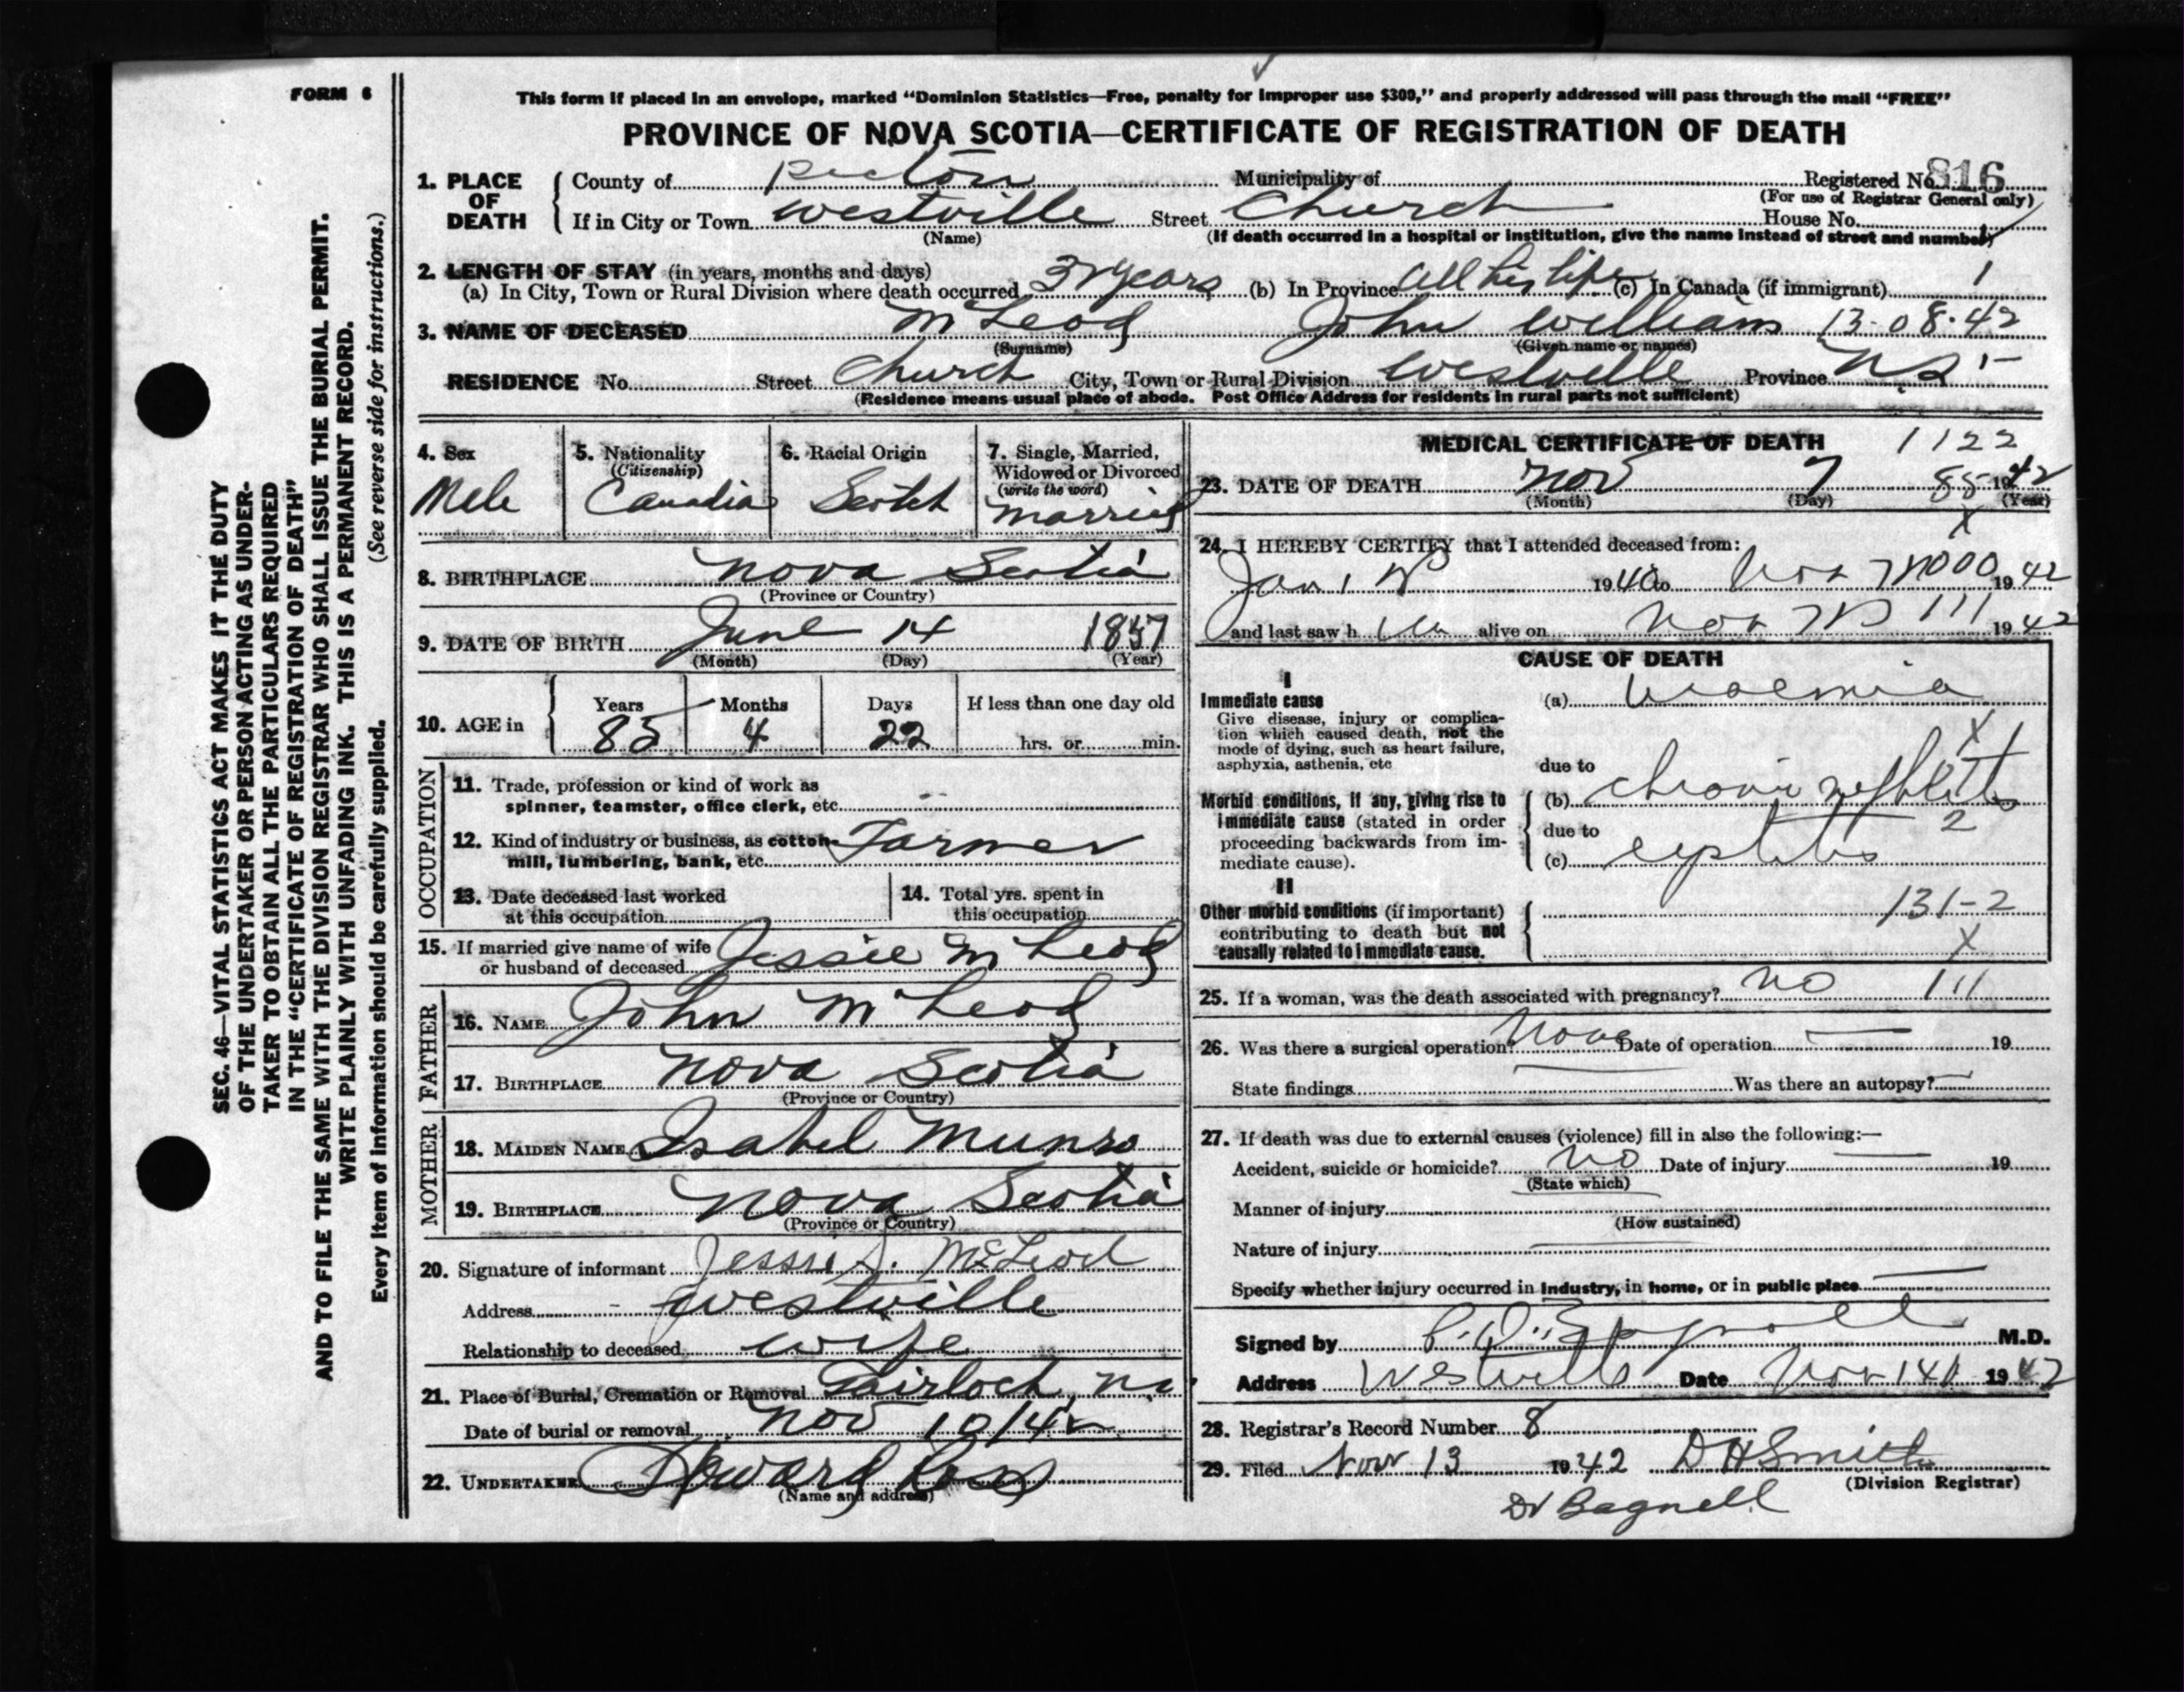 FORM 6
This form if placed in an envelope, marked "Dominion Statistics—Free, penalty for improper use $300," and properly addressed will pass through the mail "FREE"
PROVINCE OF NOVA SCOTIA—CERTIFICATE OF REGISTRATION OF DEATH
SEC. 46—VITAL STATISTICS ACT MAKES IT THE DUTY
OF THE UNDERTAKER OR PERSON ACTING AS UNDER-
TAKER TO OBTAIN ALL THE PARTICULARS REQUIRED
IN THE "CERTIFICATE OF REGISTRATION OF DEATH"
AND TO FILE THE SAME WITH THE DIVISION REGISTRAR WHO SHALL ISSUE THE BURIAL PERMIT.
WRITE PLAINLY WITH UNFADING INK. THIS IS A PERMANENT RECORD.
Every item of information should be carefully supplied. (See reverse side for instructions.)
1. PLACE OF DEATH
County of Pictou Municipality of Registered No. 816
(For use of Registrar General only)
If in City or Town Westville Street Church House No.
(Name) (If death occurred in a hospital or institution, give the name instead of street and number)
2. LENGTH OF STAY (in years, months and days)
(a) In City, Town or Rural Division where death occurred years (b) In Province all his life (c) In Canada (if immigrant) 1
3. NAME OF DECEASED McLeod John William 13-08-42
(Surname) (Given name or names)
RESIDENCE No. Street Church City, Town or Rural Division Westville Province NS
(Residence means usual place of abode. Post Office Address for residents in rural parts not sufficient)
4. Sex
Male
5. Nationality
(Citizenship)
Canadia
6. Racial Origin
Scotch
7. Single, Married,
Widowed or Divorced
(write the word)
Married
8. BIRTHPLACE Nova Scotia
(Province or Country)
9. DATE OF BIRTH June 14 1857
(Month) (Day) (Year)
10. AGE in
Years Months Days If less than one day old
85 4 22 hrs. or min.
OCCUPATION
11. Trade, profession or kind of work as
spinner, teamster, office clerk, etc. --
12. Kind of industry or business, as cotton-
mill, lumbering, bank, etc. Farmer
13. Date deceased last worked
at this occupation
14. Total yrs. spent in
this occupation
15. If married give name of wife
or husband of deceased Jessie McLeod
FATHER
16. NAME John McLeod
17. BIRTHPLACE Nova Scotia
(Province or Country)
MOTHER
18. MAIDEN NAME Isabel Munro
19. BIRTHPLACE Nova Scotia
(Province or Country)
20. Signature of informant Jessie McLeod
Address Westville
Relationship to deceased wife
21. Place of Burial, Cremation or Removal Gairloch, NS
Date of burial or removal Nov 10/42
22. UNDERTAKER Howard Ross
(Name and address)
MEDICAL CERTIFICATE OF DEATH 1122
23. DATE OF DEATH Nov 7 85 1942
(Month) (Day) (Year)
X
24. I HEREBY CERTIFY that I attended deceased from:
Jan 1 1940 to Nov 7 000 1942
and last saw h im alive on Nov 7 111 1942
CAUSE OF DEATH
I
Immediate cause
Give disease, injury or complica-
tion which caused death, not the
mode of dying, such as heart failure,
asphyxia, asthenia, etc
(a) Uraemia
X1
due to
Morbid conditions, if any, giving rise to
immediate cause (stated in order
proceeding backwards from im-
mediate cause).
(b) chronic nephritis
due to 2
(c) cystitis
II
Other morbid conditions (if important)
contributing to death but not
causally related to immediate cause.
131-2
X
25. If a woman, was the death associated with pregnancy? no 111
26. Was there a surgical operation? None Date of operation — 19
State findings Was there an autopsy? —
27. If death was due to external causes (violence) fill in also the following:—
Accident, suicide or homicide? no Date of injury — 19
(State which)
Manner of injury
(How sustained)
Nature of injury
Specify whether injury occurred in industry, in home, or in public place —
Signed by Bagnell M.D.
Address Westville Date Nov 14 1942
28. Registrar's Record Number 8
29. Filed Nov 13 1942 D H Smith
(Division Registrar)
Dr Bagnell